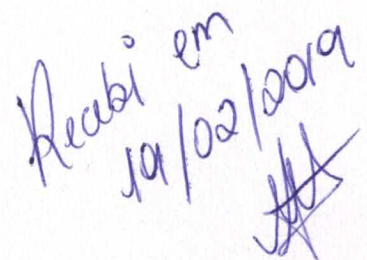 Recebi em
19/02/2019